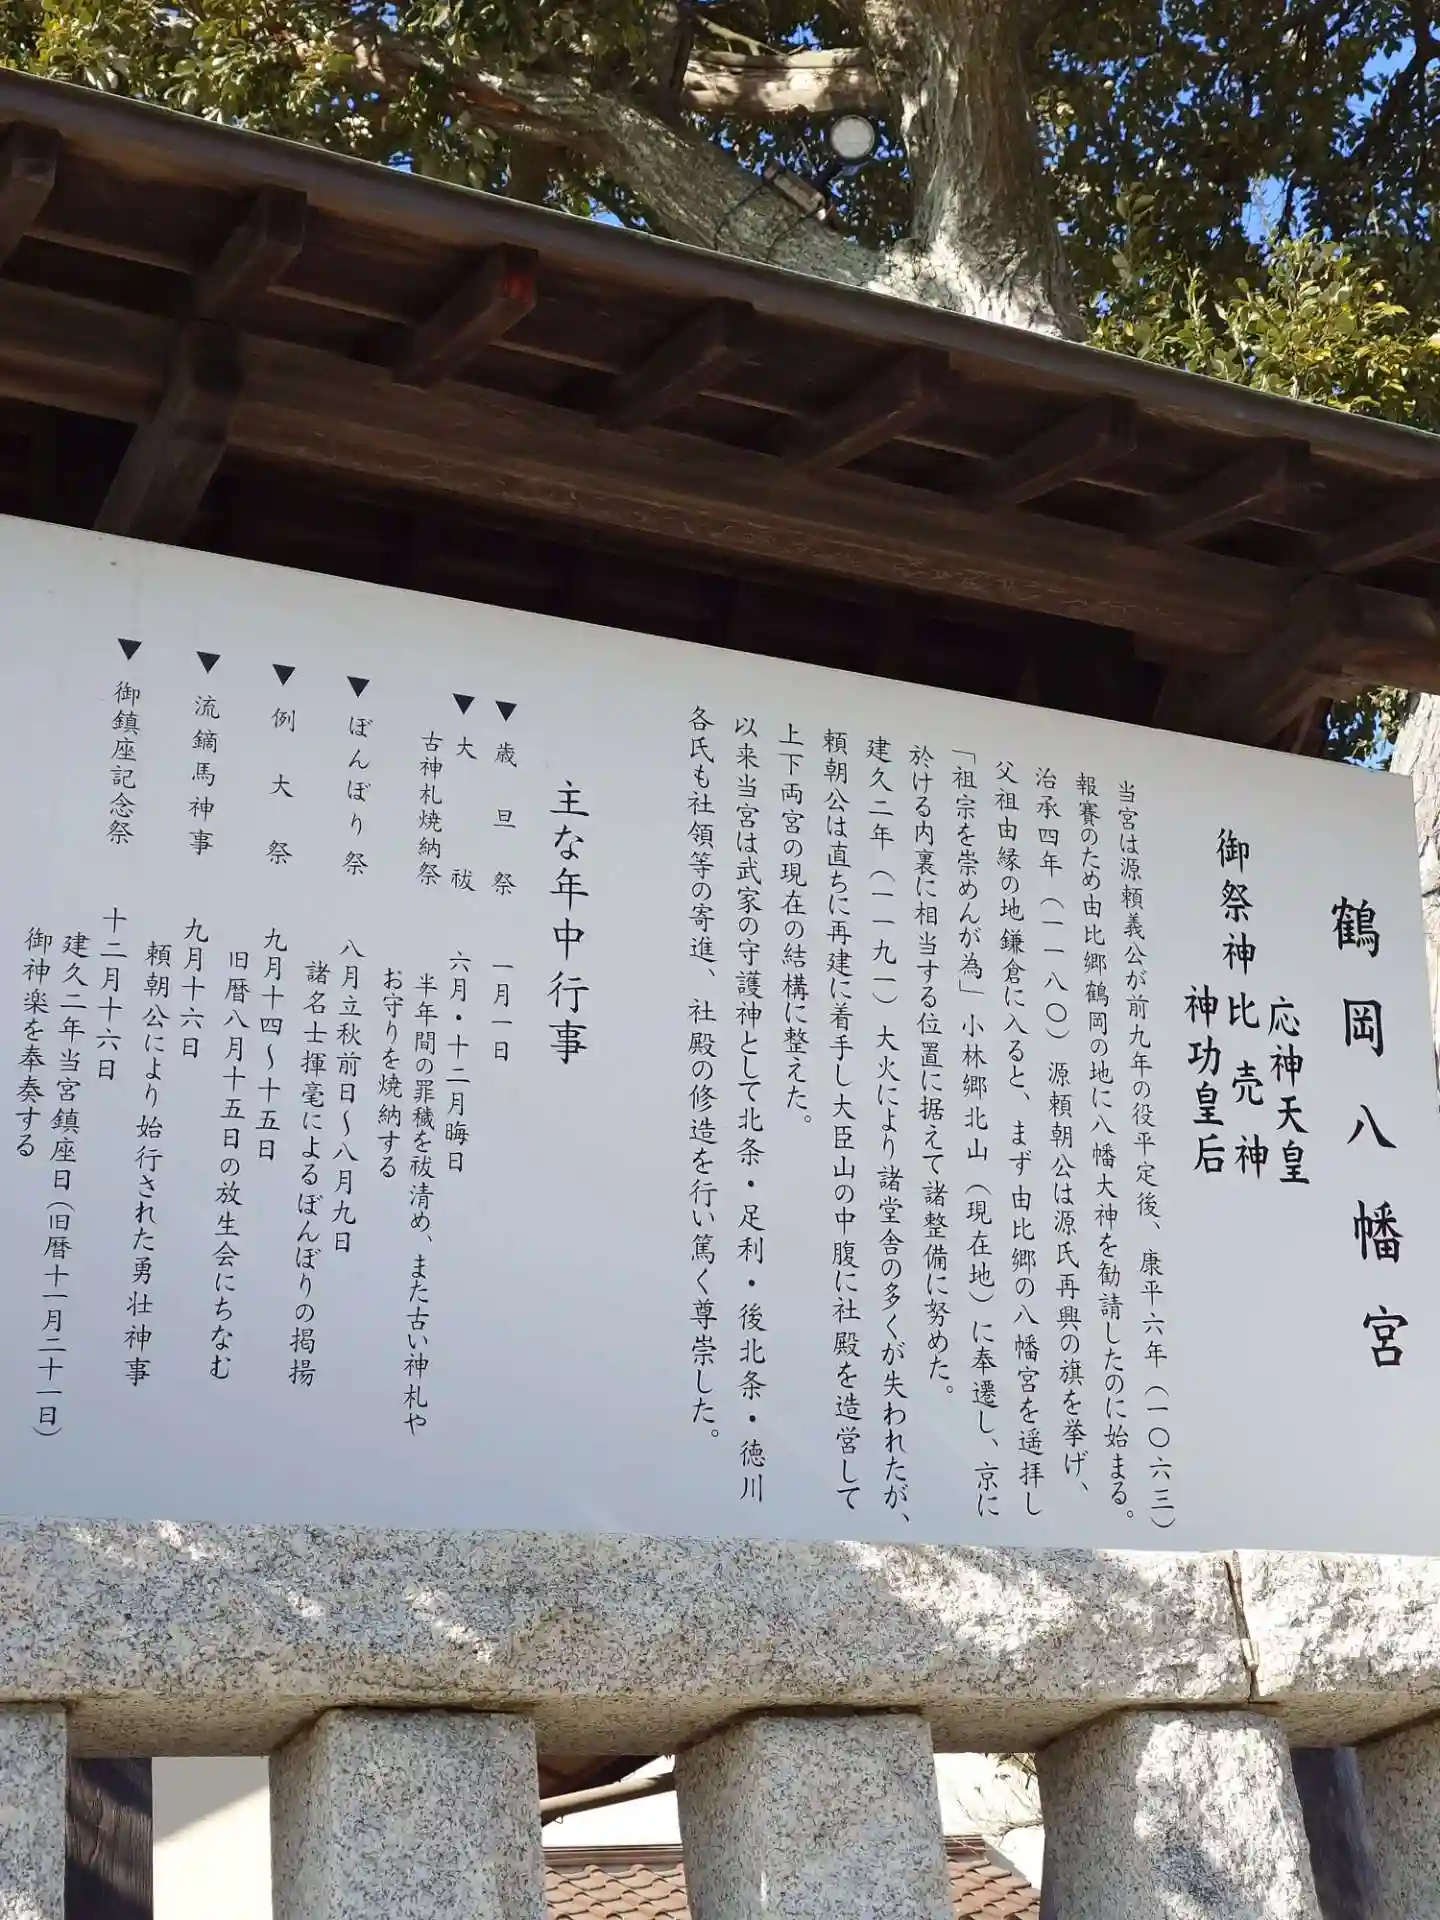 鶴岡八幡宮
応神天皇
御祭神比売神
神功皇后
当宮は源頼義公が前九年の役平定後、康平六年（一〇六三）
報賽のため由比郷鶴岡の地に八幡大神を勧請したのに始まる。
治承四年（一一八〇）源頼朝公は源氏再興の旗を挙げ、
父祖由縁の地鎌倉に入ると、まず由比郷の八幡宮を遥拝し
「祖宗を崇めんが為」小林郷北山（現在地）に奉遷し、京に
於ける内裏に相当する位置に据えて諸整備に努めた。
建久二年（一一九一）大火により諸堂舎の多くが失われたが、
頼朝公は直ちに再建に着手し大臣山の中腹に社殿を造営して
上下両宮の現在の結構に整えた。
以来当宮は武家の守護神として北条・足利・後北条・徳川
各氏も社領等の寄進、社殿の修造を行い篤く尊崇した。
主な年中行事
▼歳旦祭 一月一日
▼大祓 六月・十二月晦日
古神札焼納祭 半年間の罪穢を祓清め、また古い神札や
お守りを焼納する
▼ぼんぼり祭 八月立秋前日〜八月九日
諸名士揮毫によるぼんぼりの掲揚
▼例大祭 九月十四〜十五日
旧暦八月十五日の放生会にちなむ
▼流鏑馬神事 九月十六日
頼朝公により始行された勇壮神事
▼御鎮座記念祭 十二月十六日
建久二年当宮鎮座日（旧暦十一月二十一日）
御神楽を奉奏する